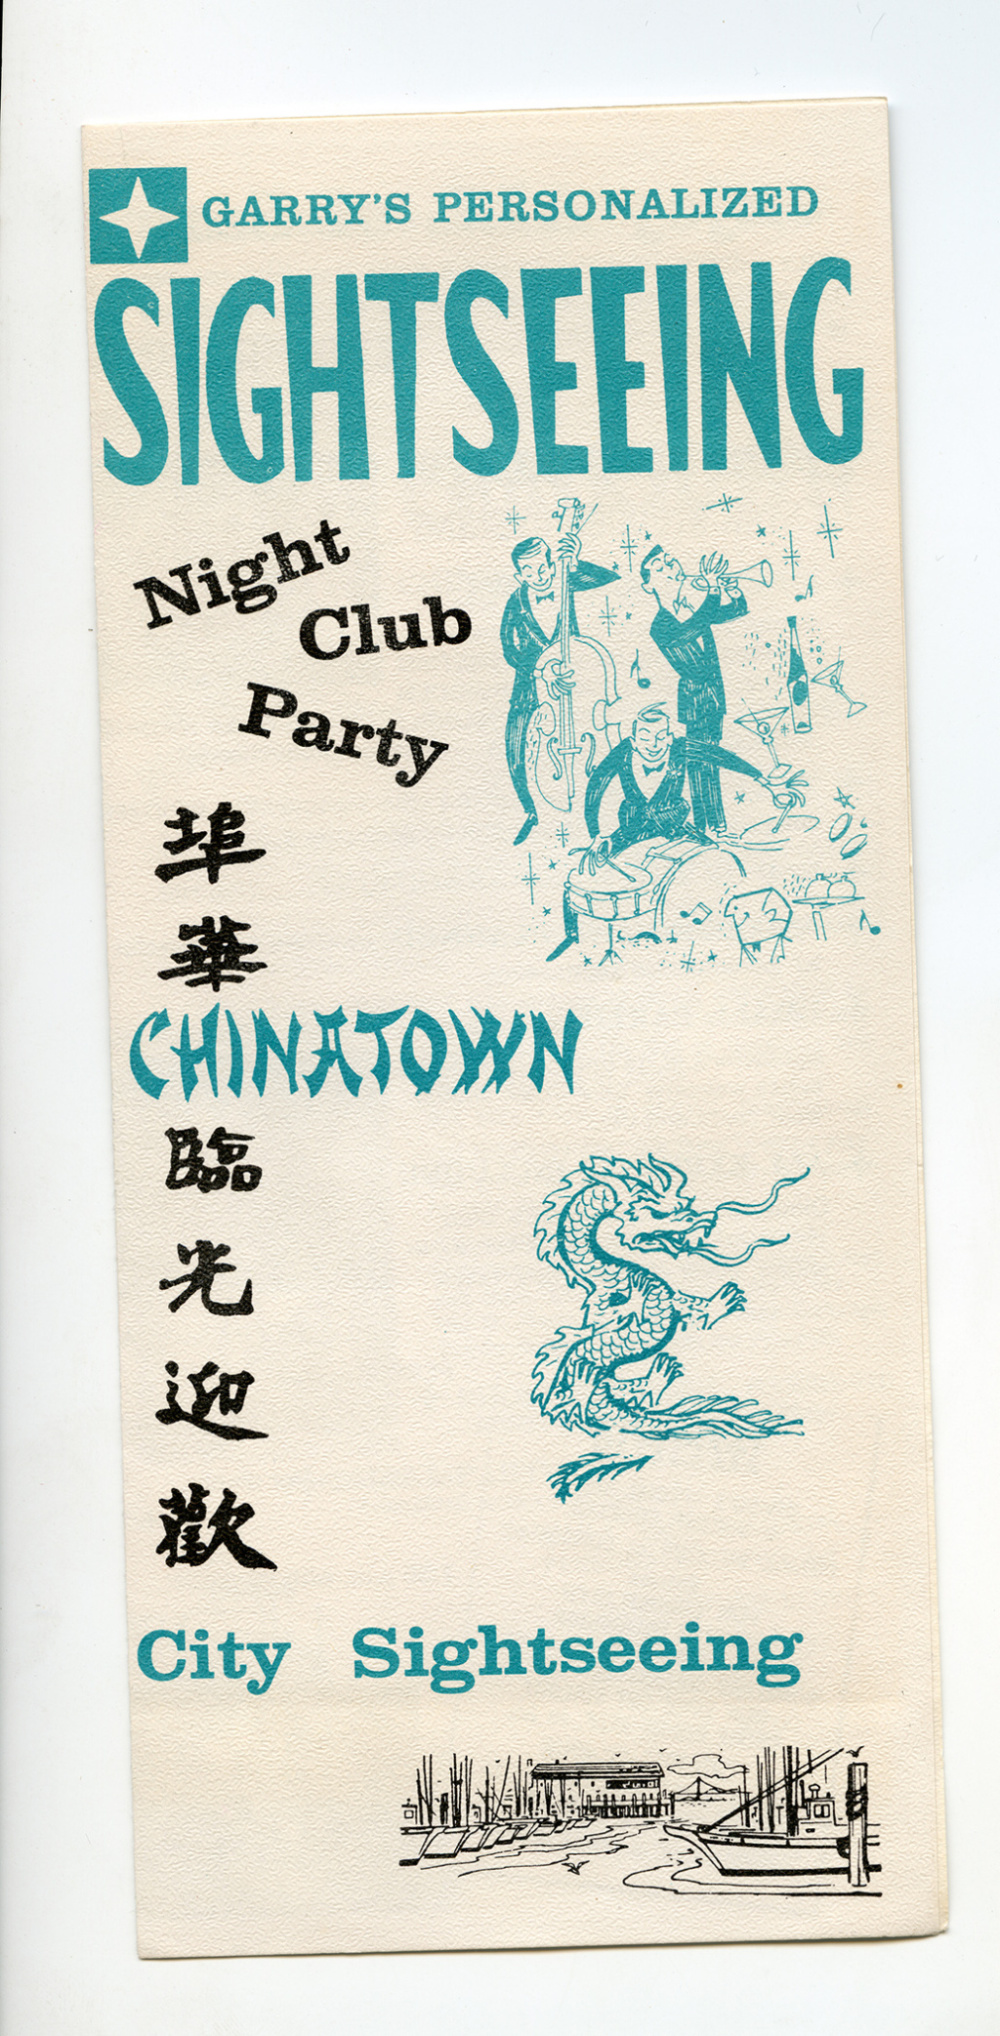 GARRY'S PERSONALIZED
SIGHTSEEING
Night
Club
Party
埠
華
CHINATOWN
臨
光
迎
歡
City Sightseeing